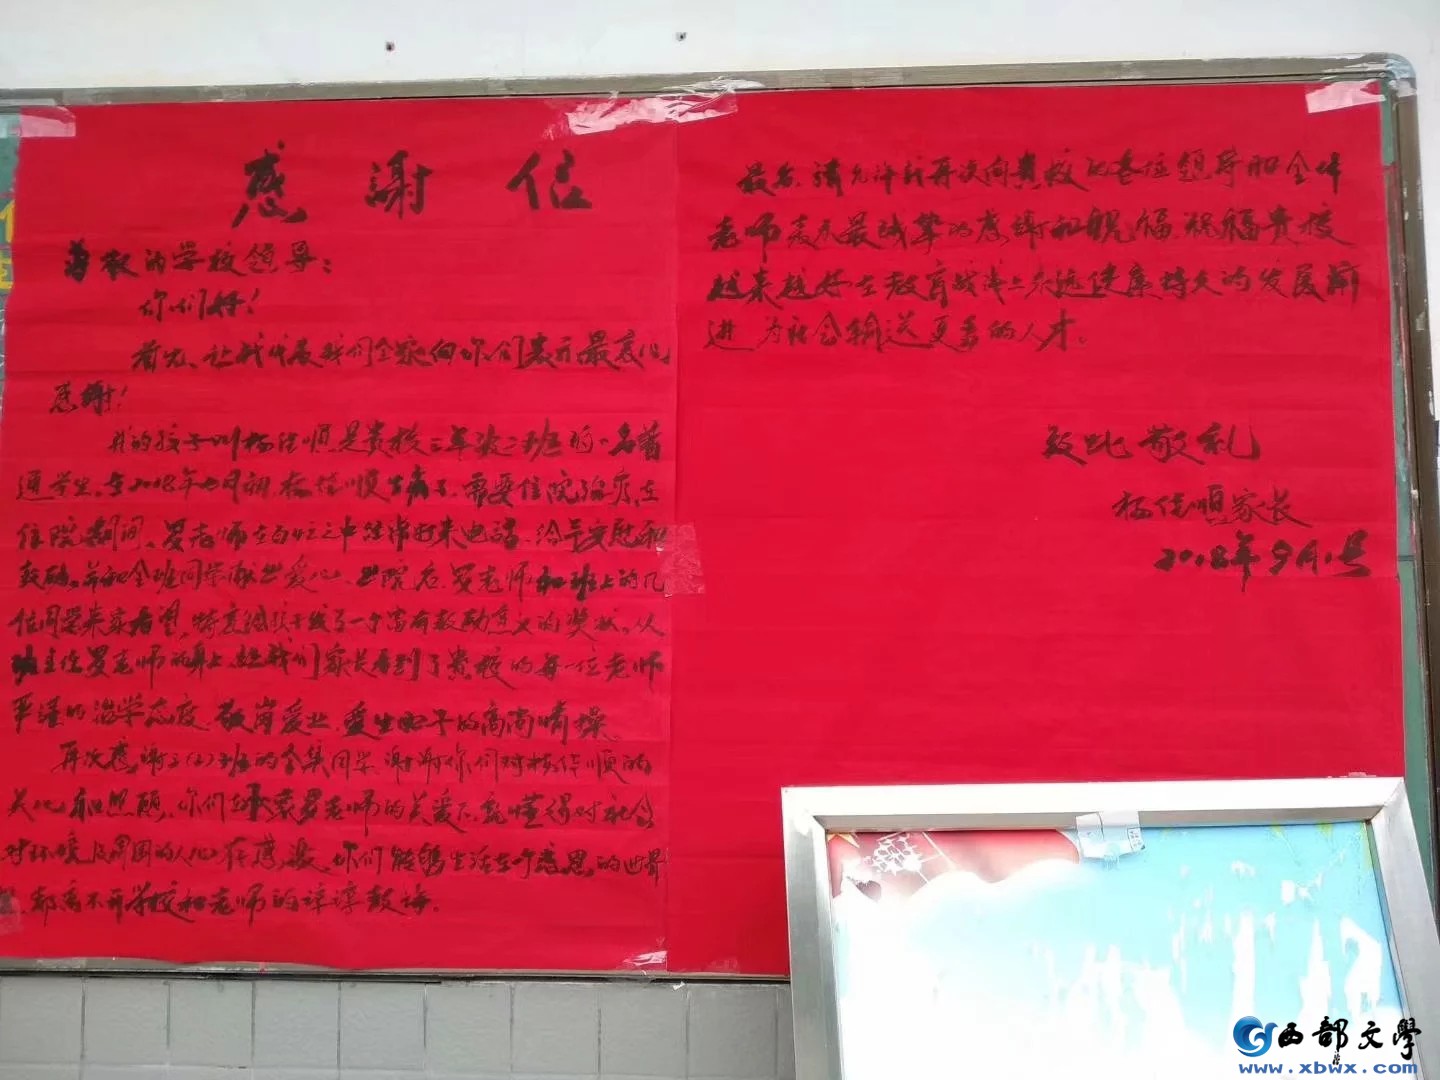 感谢信
尊敬的学校领导：
你们好！
首先、让我代表我们全家向你们表示最衷心
感谢！
我的孩子叫杨佳顺是贵校三年级二班的一名普
通学生。在2018年七月初、杨佳顺生病了、需要住院治疗在
住院期间、罗老师在百忙之中经常打来电话、给予安慰和
鼓励。并和全班同学献出爱心、出院后、罗老师和班上的几
位同学来家看望，特意给孩子发了一个富有鼓励意义的奖状。从
班主任罗老师的身上、让我们家长看到了贵校的每一位老师
严谨的治学态度、敬岗爱业、爱生如子的高尚情操。
再次感谢三(2)班的全集同学、谢谢你们对杨佳顺的
关心和照顾、你们在罗老师的关爱下、就懂得对社会
对环境及周围的人心存感激、你们能够生活在个感恩的世界
都离不开学校和老师的谆谆教诲。
最后、请允许我再次向贵校的各位领导和全体
老师表示最诚挚的感谢和祝福、祝福贵校
越来越好在教育战线上永远健康持久的发展前
进、为社会输送更多的人才。
致此敬礼
杨佳顺家长
2018年9月1号
西部文学
www.xbwx.com